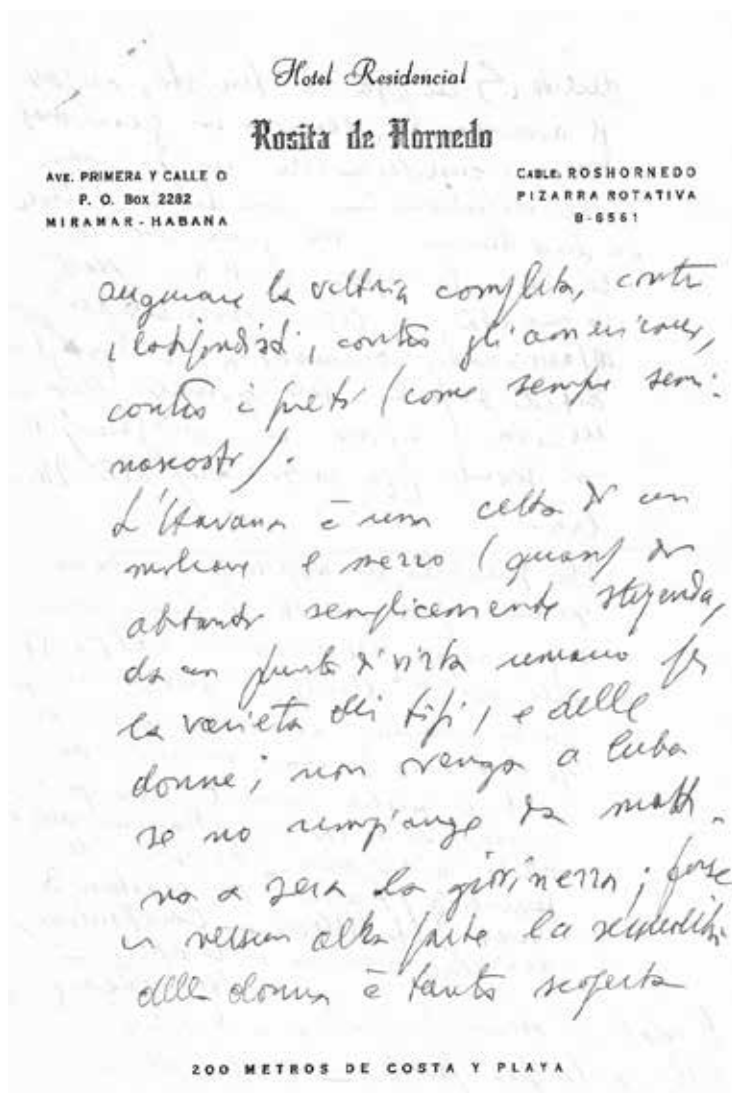 Hotel Residencial
Rosita de Hornedo
AVE. PRIMERA Y CALLE O
P. O. Box 2282
MIRAMAR - HABANA
CABLE: ROSHORNEDO
PIZARRA ROTATIVA
B-6561
augurare la vittoria completa, contro
i latifondisti, contro gli americani,
contro i preti (come sempre semi-
nascosti).
L'Havana è una città di un
milione e mezzo (quasi) di
abitanti semplicemente stupenda,
da un punto di vista umano per
la varietà dei tipi, e delle
donne; non venga a Cuba
se no rimpiange da matti-
na a sera la giovinezza; forse
in nessun altra parte la sensualità
della donna è tanto scoperta
200 METROS DE COSTA Y PLAYA